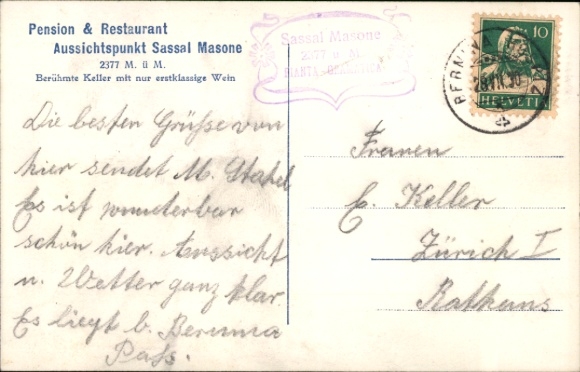 Pension & Restaurant
Aussichtspunkt Sassal Masone
2377 M. ü M.
Berühmte Keller mit nur erstklassige Wein
Sassal Masone
2377 ü. M.
10
HELVETIA
Die besten Grüße von
hier sendet M. Stahel
Es ist wunderbar
schön hier. Aussicht
u. Wetter ganz klar.
Es liegt b. Bernina
Pass.
E. Keller
Zürich I
Rathaus